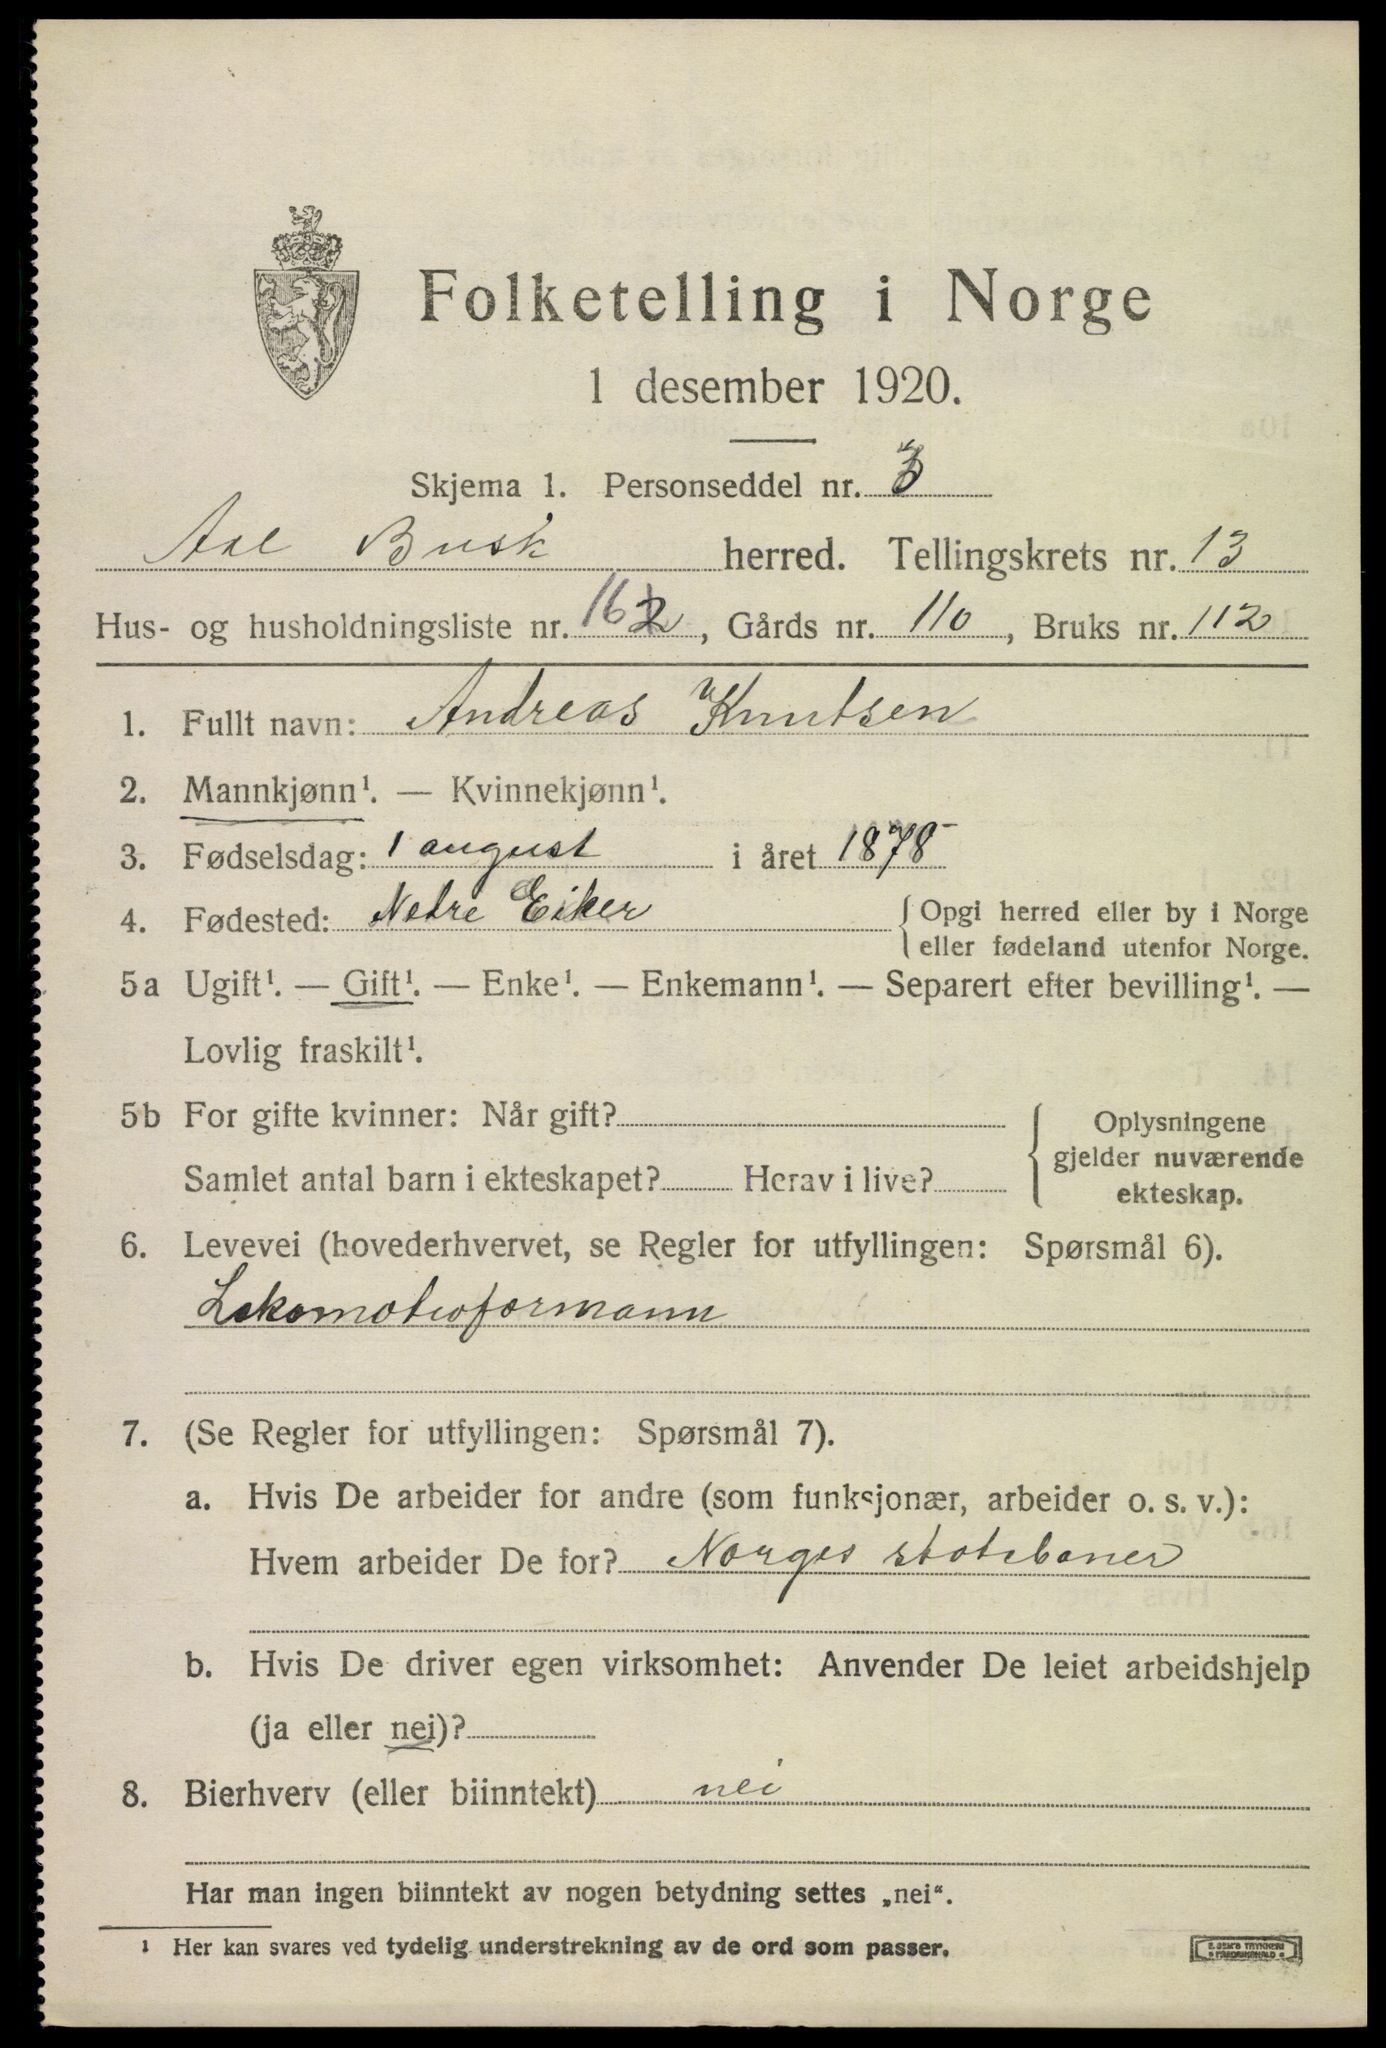 Folketelling i Norge
1 desember 1920.
Skjema 1. Personseddel nr. 3
Aal Busk herred. Tellingskrets nr. 13
Hus- og husholdningsliste nr. 162, Gårds nr. 110, Bruks nr. 112
1. Fullt navn: Andreas Knutsen
2. Mannkjønn¹. — Kvinnekjønn¹.
3. Fødselsdag: 1 august i året 1878
4. Fødested: Nedre Eiker {Opgi herred eller by i Norge
eller fødeland utenfor Norge.
5a Ugift¹. — Gift¹. — Enke¹. — Enkemann¹. — Separert efter bevilling¹. —
Lovlig fraskilt¹.
5b For gifte kvinner: Når gift?
Samlet antal barn i ekteskapet? Herav i live?
Oplysningene
gjelder nuværende
ekteskap.
6. Levevei (hovederhvervet, se Regler for utfyllingen: Spørsmål 6).
Lokomotivformann
7. (Se Regler for utfyllingen: Spørsmål 7).
a. Hvis De arbeider for andre (som funksjonær, arbeider o. s. v.):
Hvem arbeider De for? Norges statsbaner
b. Hvis De driver egen virksomhet: Anvender De leiet arbeidshjelp
(ja eller nei)?
8. Bierhverv (eller biinntekt) nei
Har man ingen biinntekt av nogen betydning settes „nei“.
¹ Her kan svares ved tydelig understrekning av de ord som passer.
E. SEM'S TRYKKERI
FREDRIKSHALD